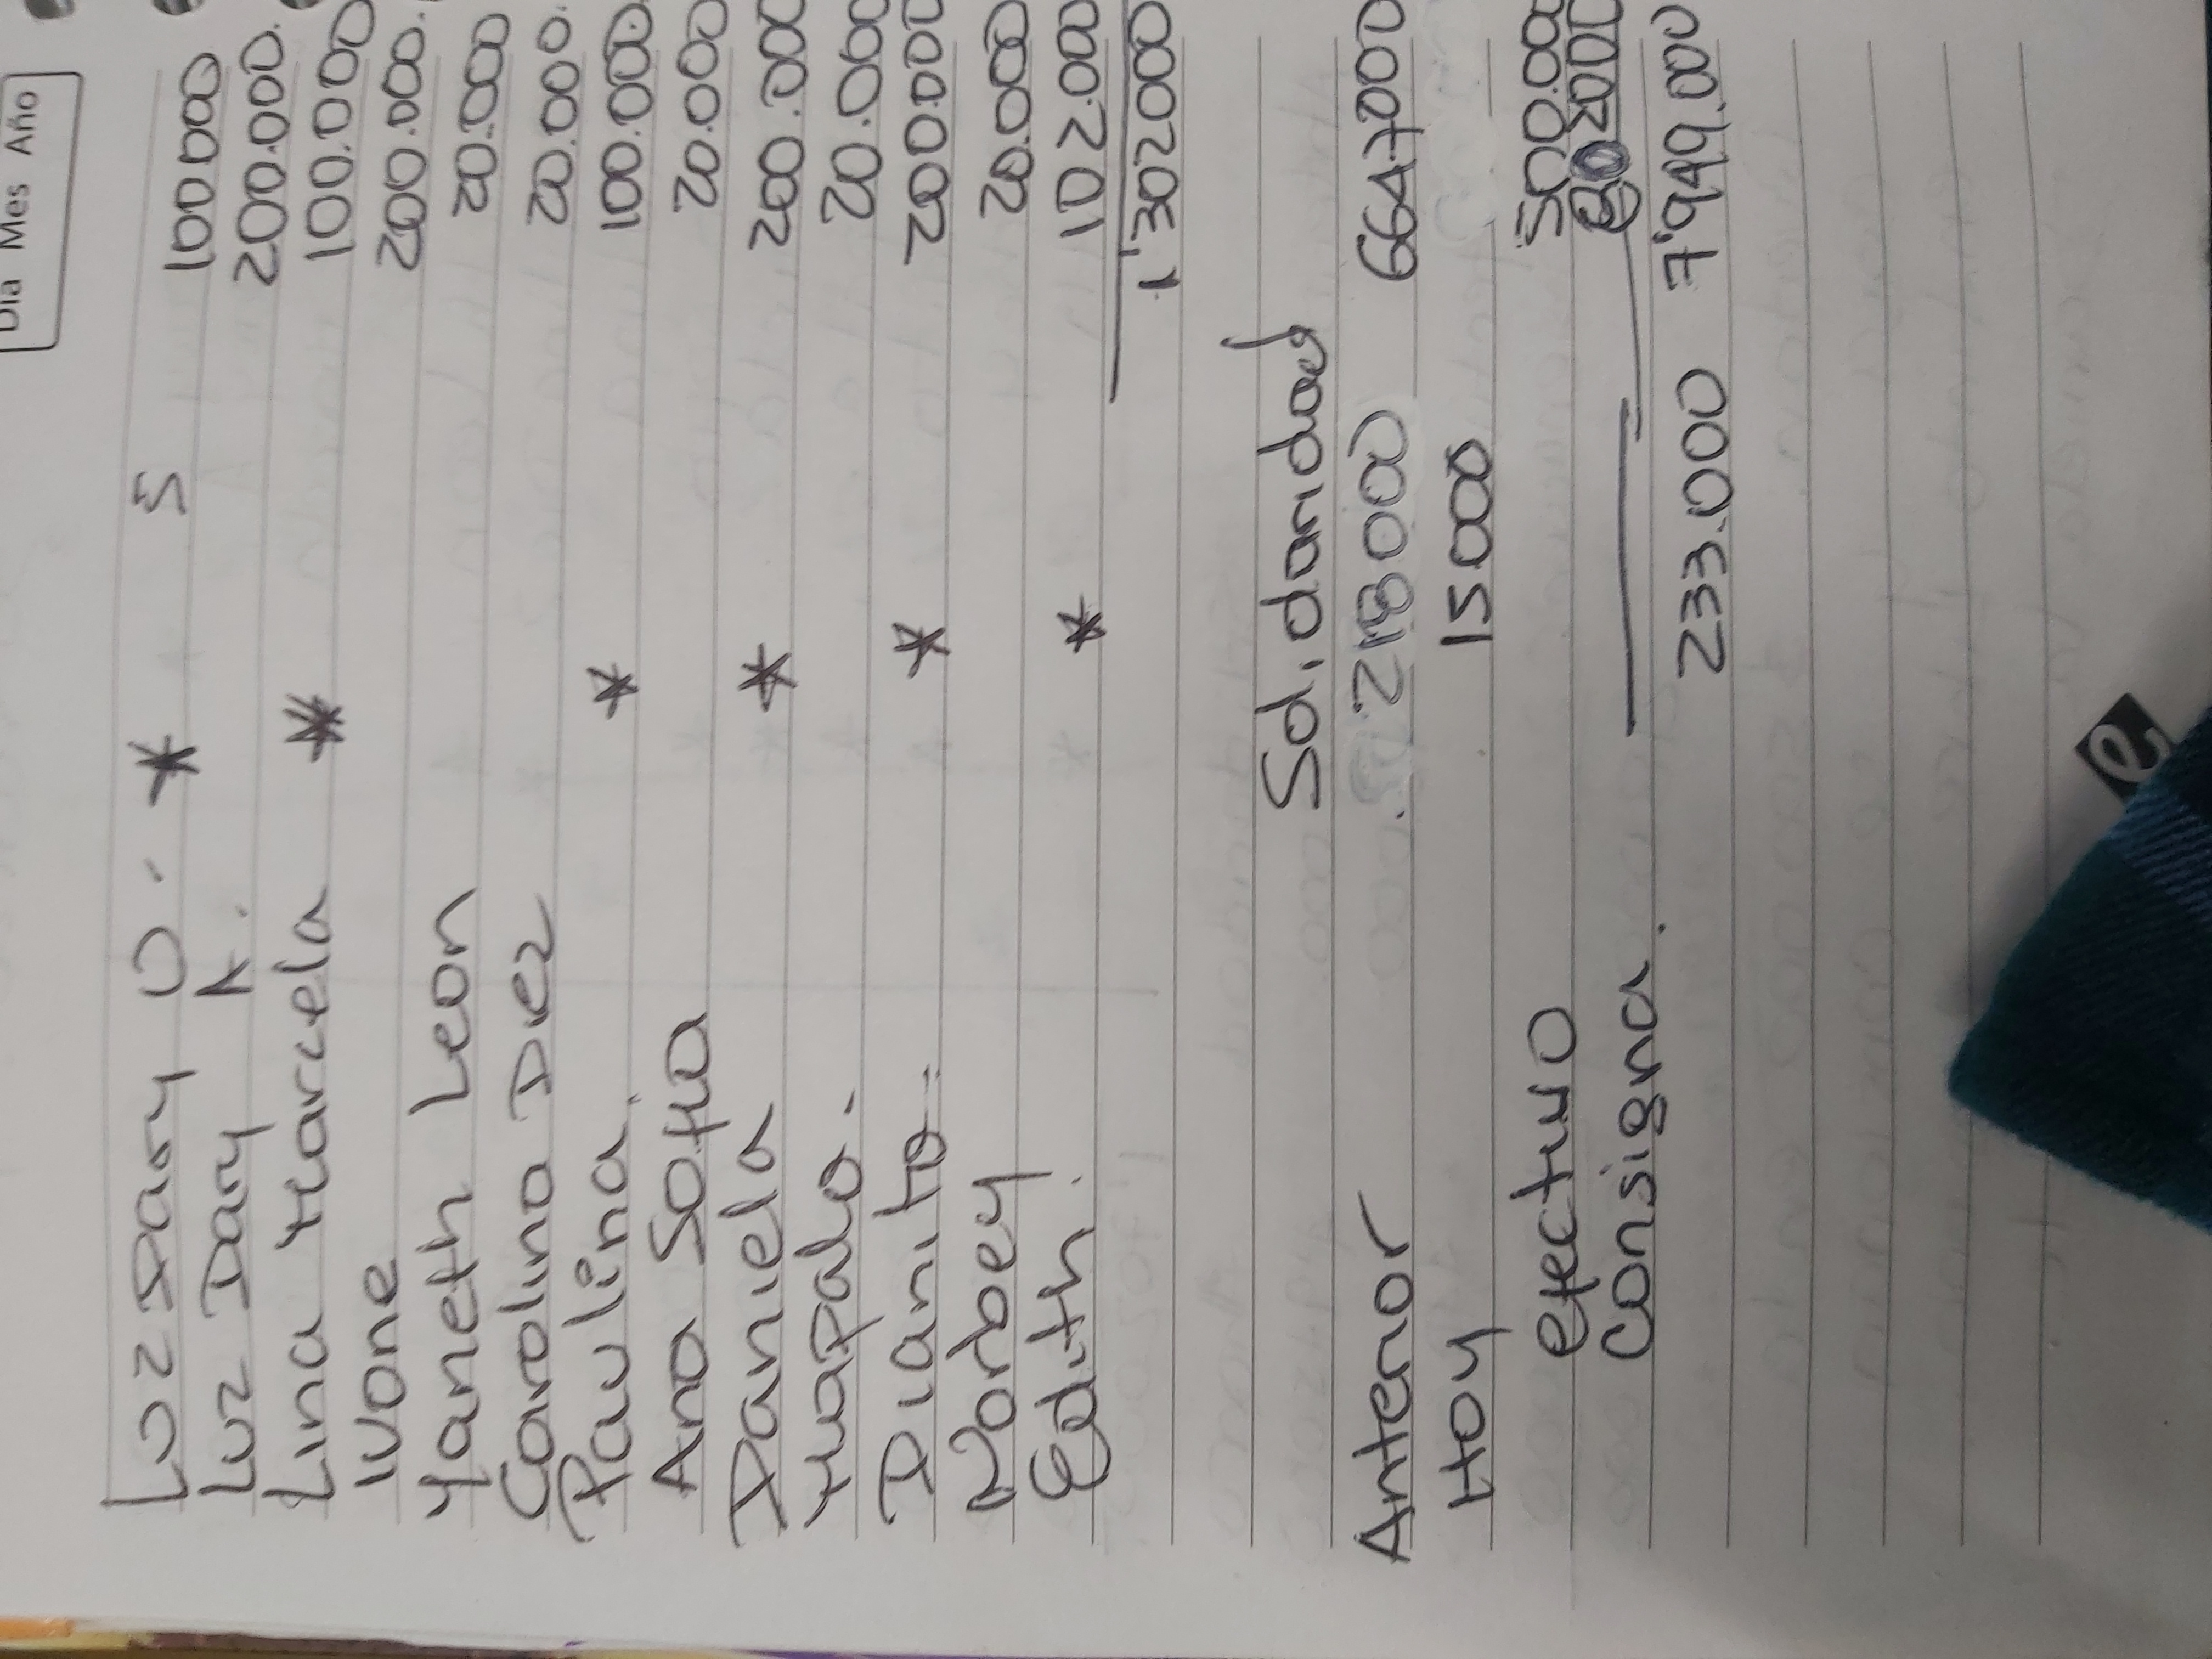 Dia Mes Año
Luz Dary O. * S 100000
Luz Dary A. 200.000.
Lina Marcela * 100.000
Ivone 200.000.
Yaneth Leon 20.000
Carolina Diez 20.000.
Paulina. * 100.000
Ana Sofia 20.000
Daniela * 200.000
Mapalo. 20.000
Dianita * 200000
Norbey 20.000
Edith. * 102.000
1'302000
Solidaridad
Anterior 218000 6647000
Hoy 15000
efectivo 500.000
Consigna. 802000
233.000 7'949.000
e